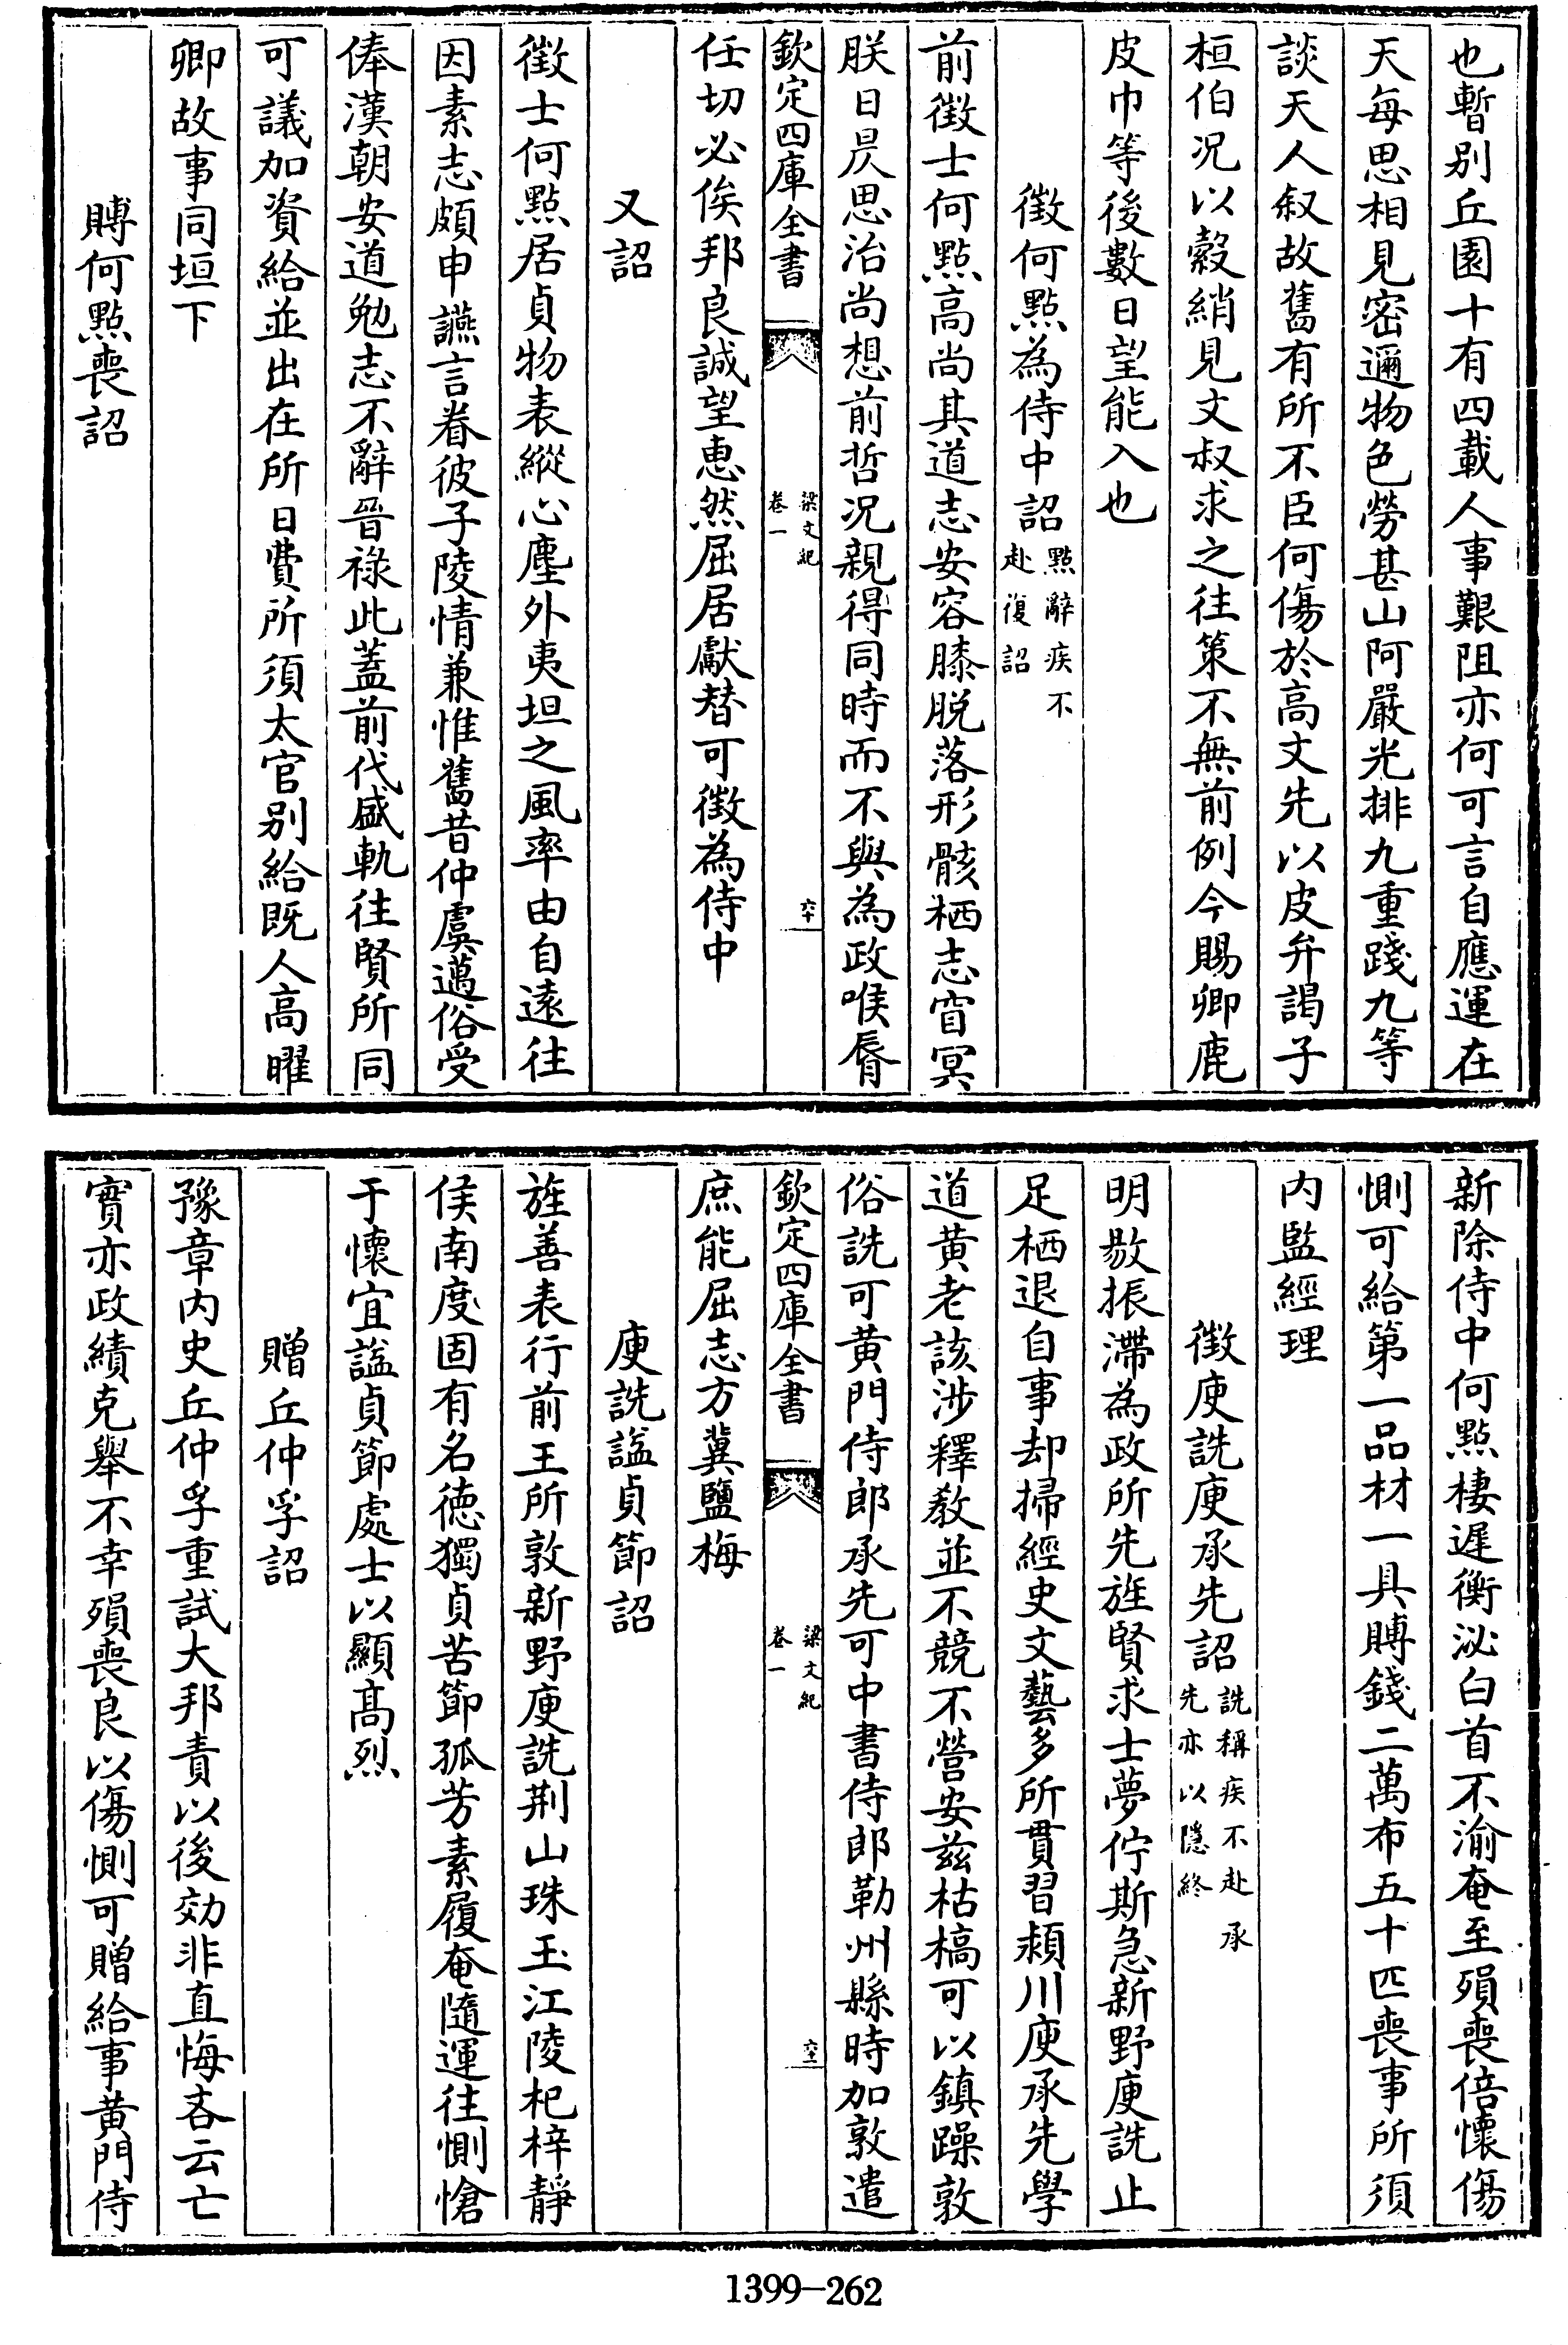 也暫别丘園十有四載人事艱阻亦何可言自應運在
天每思相見密邇物色勞甚山阿嚴光排九重踐九等
談天人叙故舊有所不臣何傷於高文先以皮弁謁子
桓伯况以縠綃見文叔求之往策不無前例今賜卿鹿
皮巾等後數日望能入也
徴何㸃為侍中詔㸃辭疾不
赴復詔
前徴士何㸃高尚其道志安容膝脱落形骸栖志窅冥
朕日昃思治尚想前哲况親得同時而不與為政喉脣
欽定四庫全書
梁文紀
卷一
六十
任切必俟邦良誠望惠然屈居獻替可徴為侍中
又詔
徴士何㸃居貞物表縱心塵外夷坦之風率由自逺往
因素志頗申讌言眷彼子陵情兼惟舊昔仲虞邁俗受
俸漢朝安道勉志不辭晉祿此蓋前代盛軌往賢所同
可議加資給並出在所日費所須太官别給既人高曜
卿故事同垣下
賻何㸃喪詔
新除侍中何㸃棲遲衡泌白首不渝奄至殞喪倍懷傷
惻可給第一品材一具賻錢二萬布五十匹喪事所須
内監經理
徴庾詵庾承先詔詵稱疾不赴承
先亦以隱終
明敭振滯為政所先旌賢求士夢佇斯急新野庾詵止
足栖退自事却掃經史文藝多所貫習潁川庾承先學
道黄老該涉釋教並不競不營安兹枯槁可以鎮躁敦
俗詵可黄門侍郎承先可中書侍郎勒州縣時加敦遣
欽定四庫全書
梁文紀
卷一
六十一
庶能屈志方冀鹽梅
庾詵諡貞節詔
旌善表行前王所敦新野庾詵荆山珠玉江陵杞梓靜
侯南度固有名德獨貞苦節孤芳素履奄隨運往惻愴
于懷宜諡貞節處士以顯髙烈
贈丘仲孚詔
豫章内史丘仲孚重試大邦責以後効非直悔吝云亡
實亦政績克舉不幸殞喪良以傷惻可贈給事黄門侍
1399-262